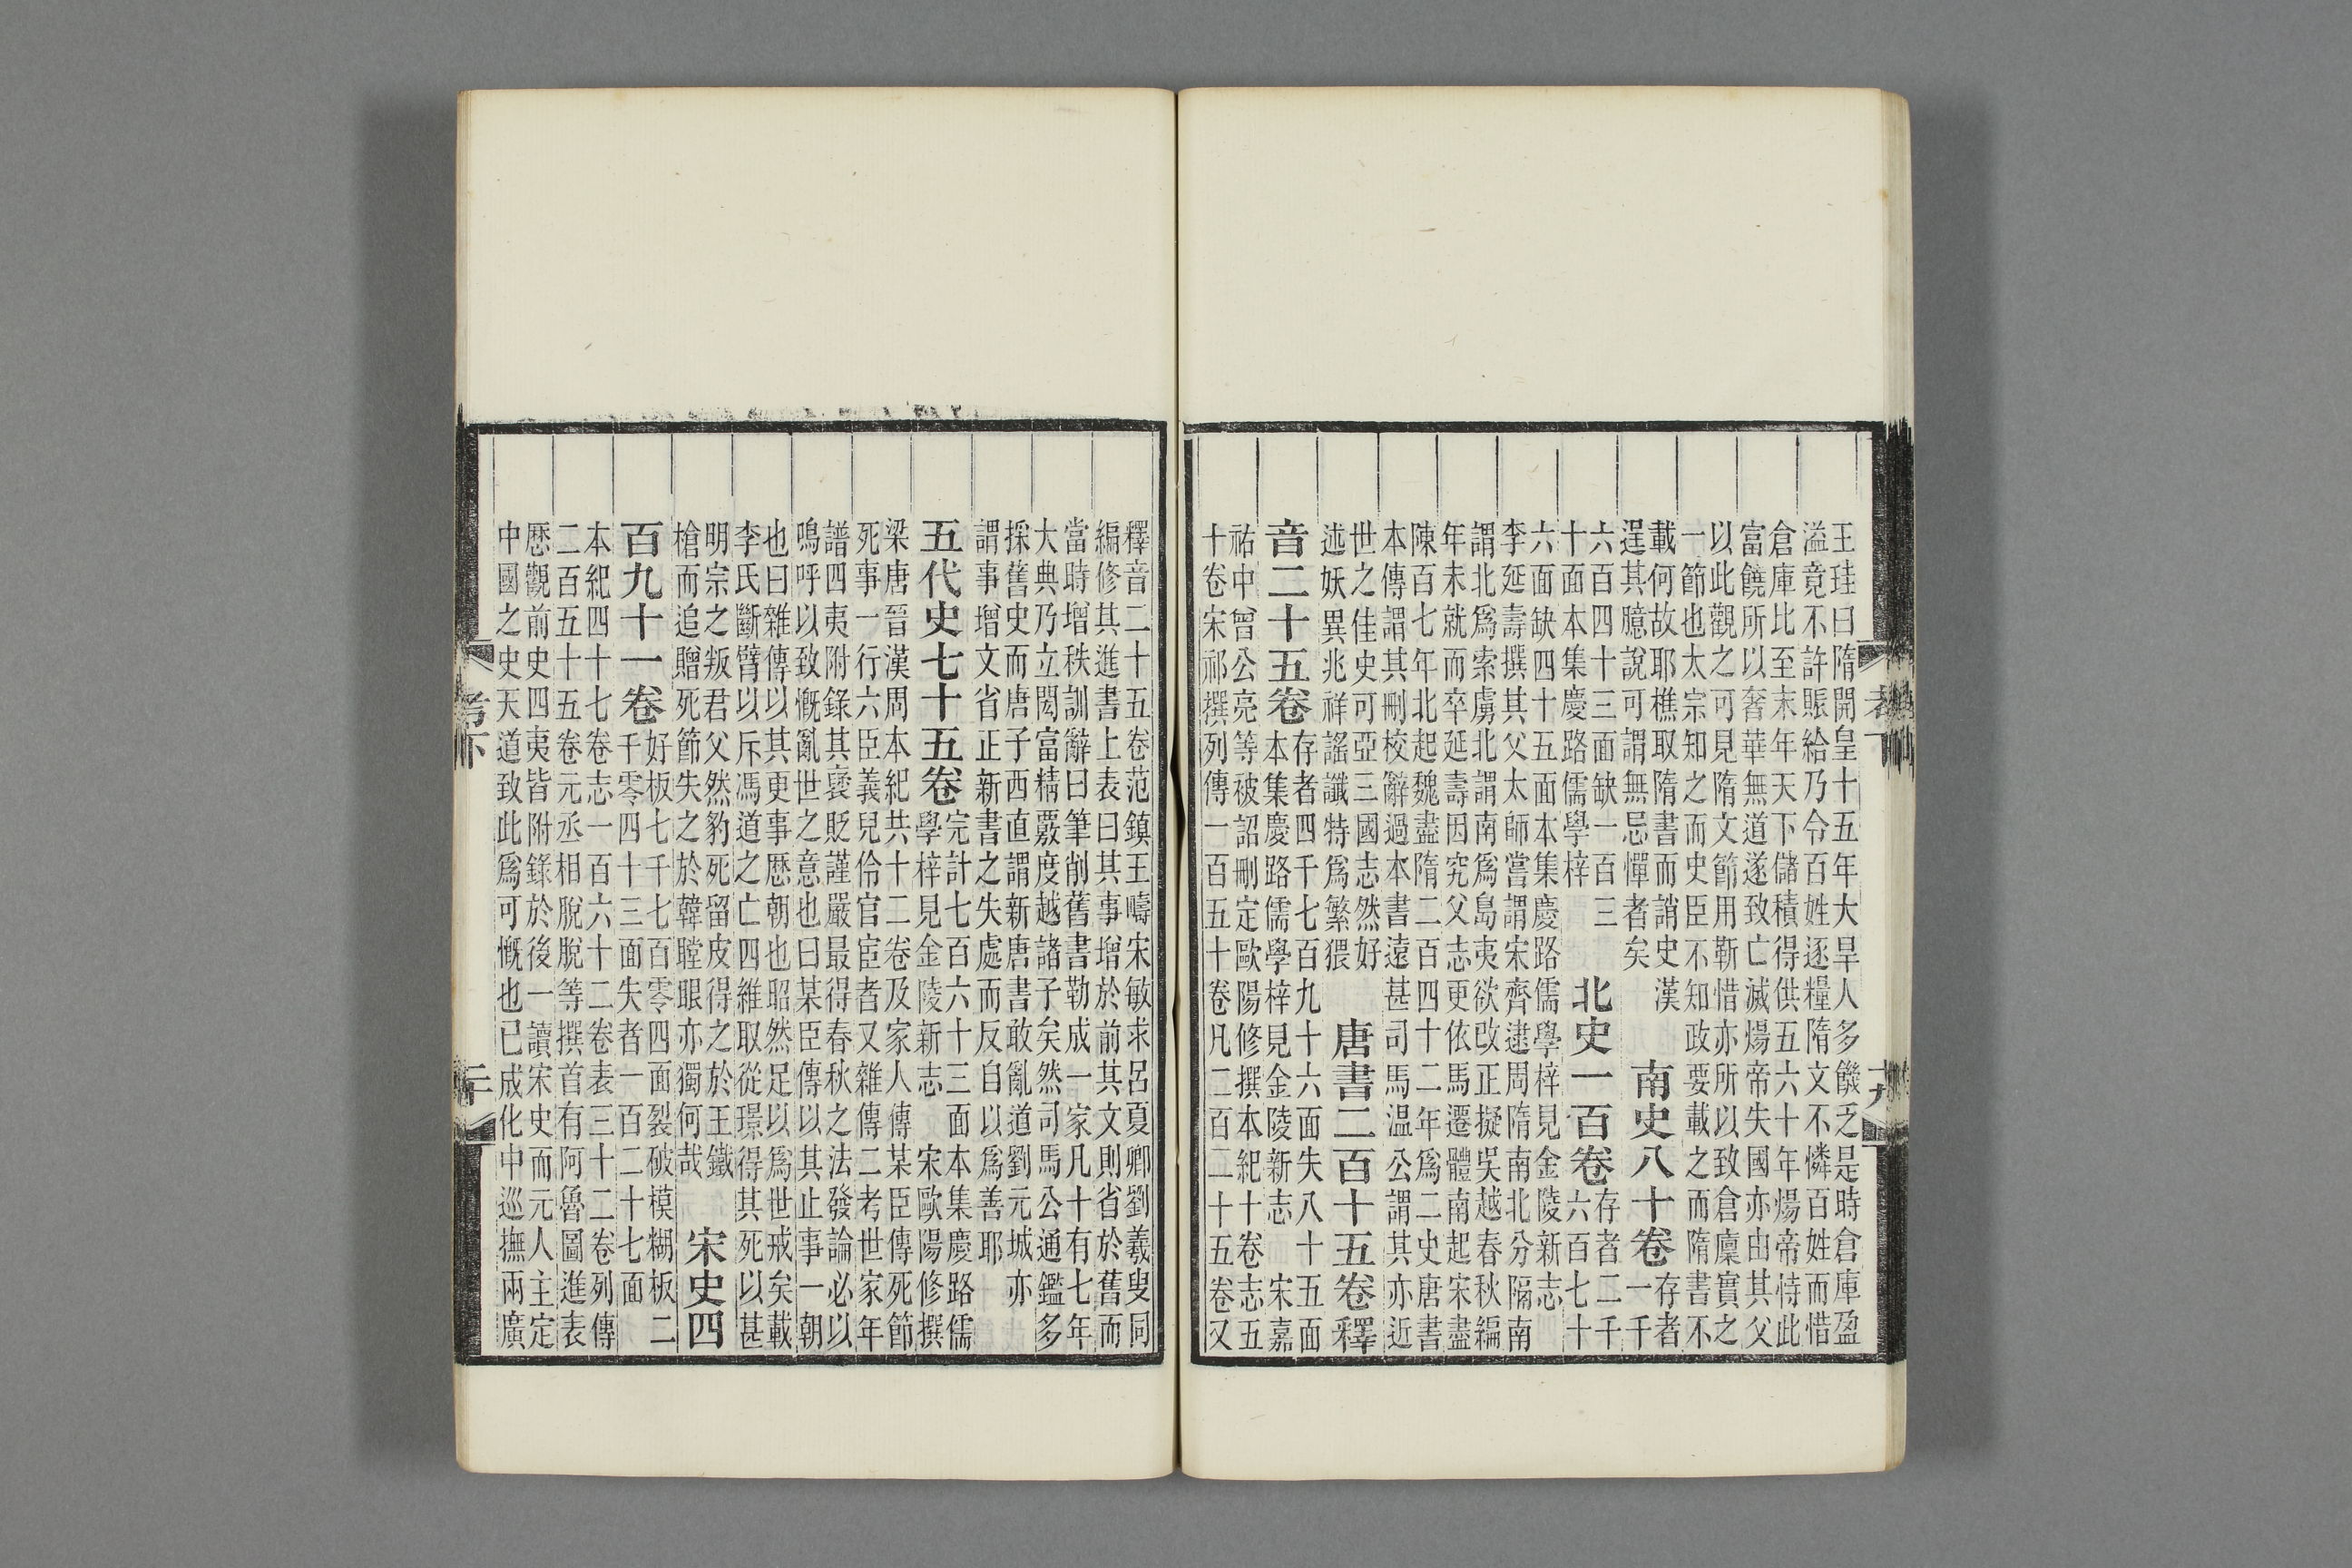 王珪曰隋開皇十五年大旱人多饑乏是時倉庫盈
溢竟不許賑給乃令百姓逐糧隋文不憐百姓而惜
倉庫比至末年天下儲積得供五六十年煬帝恃此
富饒所以奢華無道遂致亡滅煬帝失國亦由其父
以此觀之可見隋文節用靳惜亦所以致倉廩實之
一節也太宗知之而史臣不知政要載之而隋書不
載何故耶樵取隋書而誚史漢
逞其臆說可謂無忌憚者矣
南史八十卷
存者
一千
六百四十三面缺一百三
十面本集慶路儒學梓
北史一百卷
存者二千
六百七十
六面缺四十五面本集慶路儒學梓見金陵新志
李延壽撰其父太師嘗謂宋齊逮周隋南北分隔南
謂北爲索虜北謂南爲島夷欲改正擬吳越春秋編
年未就而卒延壽因究父志更依馬遷體南起宋盡
陳百七年北起魏盡隋二百四十二年爲二史唐書
本傳謂其刪校辭過本書遠甚司馬温公謂其亦近
世之佳史可亞三國志然好
述妖異兆祥謠讖特爲繁猥
唐書二百十五卷釋
音二十五卷
存者四千七百九十六面失八十五面
本集慶路儒學梓見金陵新志 宋嘉
祐中曾公亮等被詔刪定歐陽修撰本紀十卷志五
十卷宋祁撰列傳一百五十卷凡二百二十五卷又
釋音二十五卷范鎮王疇宋敏求呂夏卿劉羲叟同
編修其進書上表曰其事增於前其文則省於舊而
當時增秩訓辭曰筆削舊書勒成一家凡十有七年
大典乃立閎富精覈度越諸子矣然司馬公通鑑多
採舊史而唐子西直謂新唐書敢亂道劉元城亦
謂事增文省正新書之失處而反自以爲善耶
五代史七十五卷
完計七百六十三面本集慶路儒
學梓見金陵新志 宋歐陽修撰
梁唐晉漢周本紀共十二卷及家人傳某臣傳死節
死事一行六臣義兒伶官宦者又雜傳二考世家年
譜四夷附錄其褒貶謹嚴最得春秋之法發論必以
嗚呼以致慨亂世之意也曰某臣傳以其止事一朝
也曰雜傳以其更事厯朝也昭然足以爲世戒矣載
李氏斷臂以斥馮道之亡四維取從璟得其死以甚
明宗之叛君父然豹死留皮得之於王鐵
槍而追贈死節失之於韓瞠眼亦獨何哉
宋史四
百九十一卷
好板七千七百零四面裂破模糊板二
千零四十三面失者一百二十七面
本紀四十七卷志一百六十二卷表三十二卷列傳
二百五十五卷元丞相脫脫等撰首有阿魯圖進表
厯觀前史四夷皆附錄於後一讀宋史而元人主定
中國之史天道致此爲可慨也已成化中巡撫兩廣
考下
二十